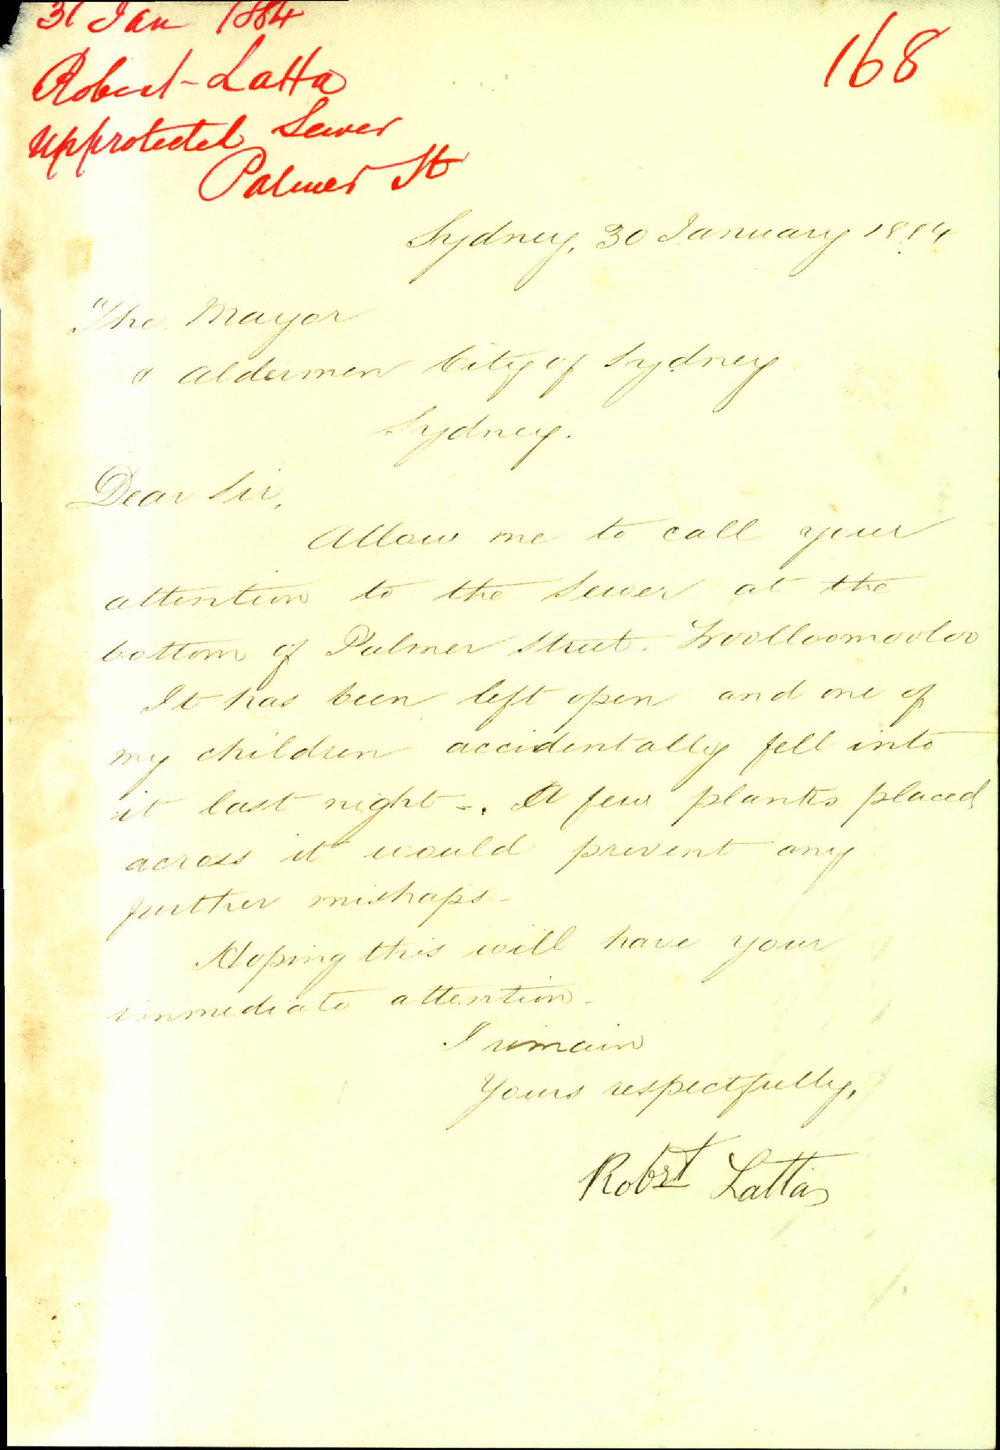 31 Jan 1884
168
Robert Latta
Upprotected Sewer
Palmer St
Sydney, 30 January 1884
The Mayor
& Aldermen City of Sydney
Sydney.
Dear Sir,
Allow me to call your
attention to the Sewer at the
bottom of Palmer Street. Woolloomooloo
It has been left open and one of
my children accidentally fell into
it last night -. A few planks placed
across it would prevent any
further mishaps -
Hoping this will have your
immediate attention -
I remain
Yours respectfully,
Robrt Latta